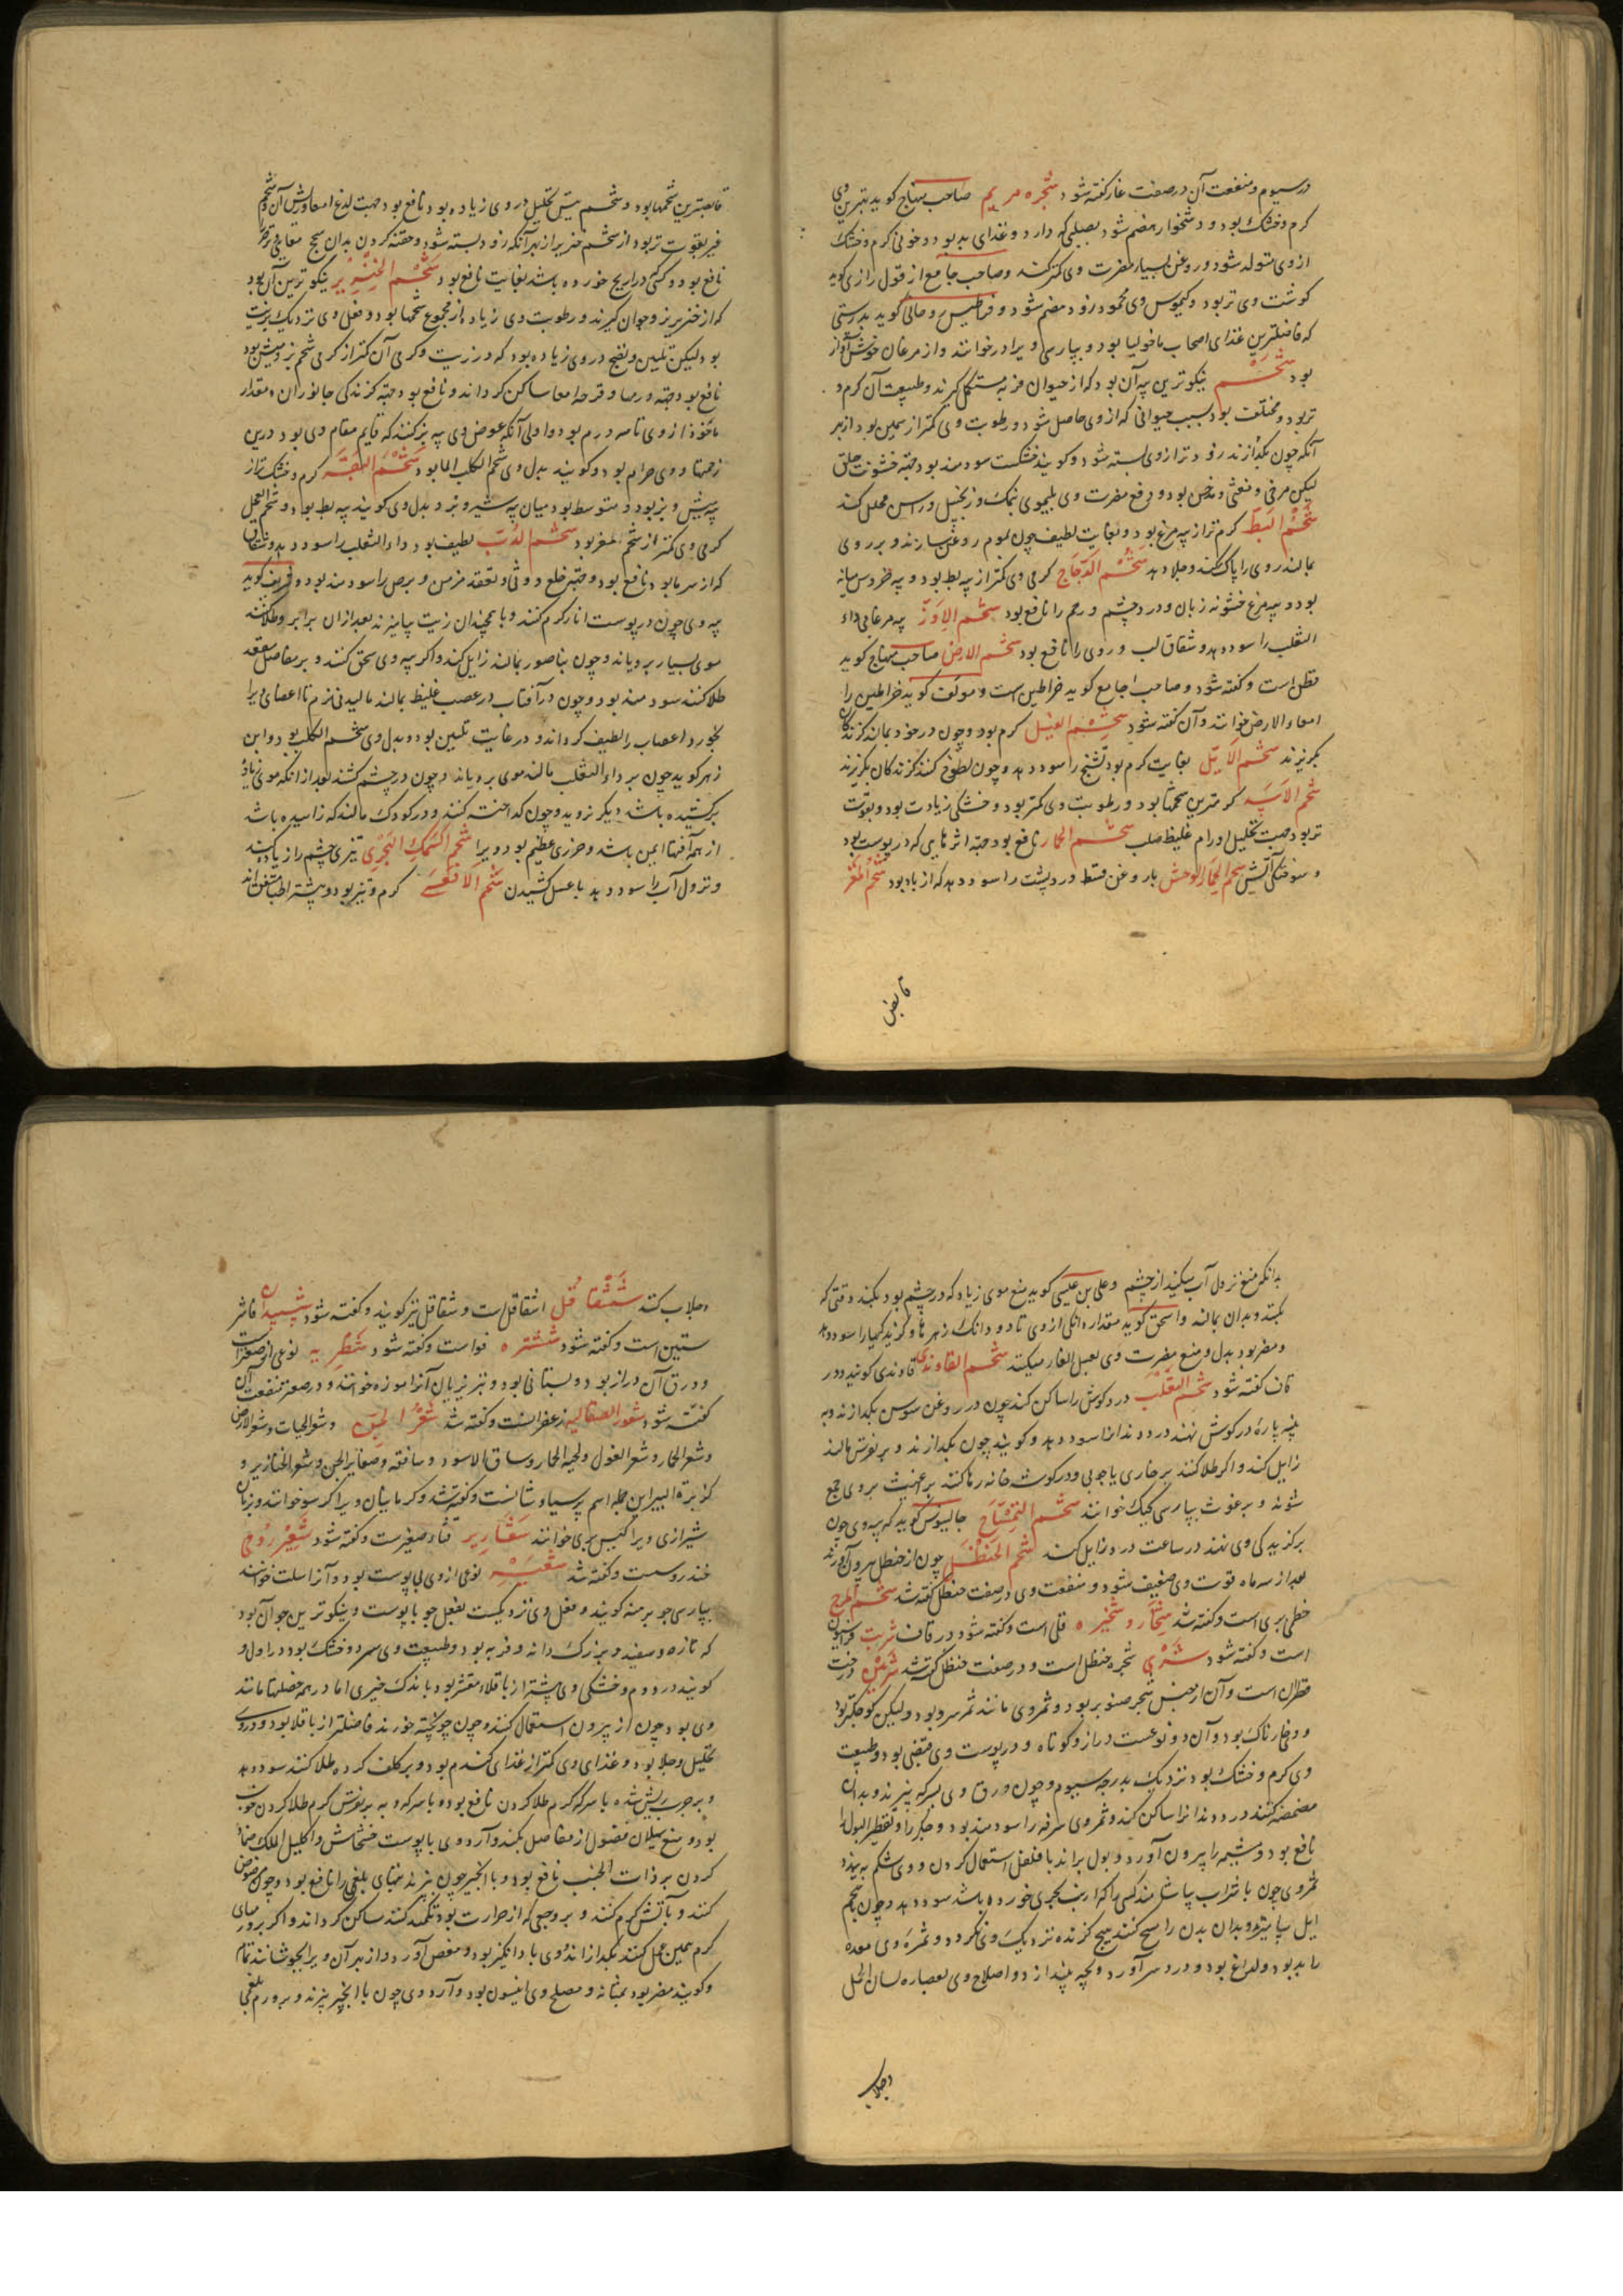 در سیوم و منفعت آن در صفت غار گفته شود شجره مریم صاحب منهاج گوید بهترین وی
گرم و خشک بود و دشخوار هضم شود دارد و غذای بد بود و خونی گرم و خشک
از وی متولد شود و روغن بسیار مضرت وی کمتر کند و صاحب جامع از قول رازی گوید
گوشت وی تر بود و کیموس وی محمود زود هضم شود و گوید بدرستی
که فاضلترین غذای اصحاب ماخولیا بود و بپارسی ویرا خوانند و از مرغان خوش آواز
بود شحم نیکوترین پیه آن بود که از حیوان فربه مستکمل گیرند و طبیعت آن گرم و
تر بود و مختلف بود بسبب حیوانی که از وی حاصل شود و رطوبت وی کمتر از سمین بود از بهر
آنکه چون بگدازند زودتر از وی بسته شود و گویند خشکست سودمند بود جهة خشونت حلق
لیکن مرخی و مغثی و مدخن بود و دفع مضرت وی بلیموی نمک و زنجبیل و راسن مخلل کند
شحم البط گرم تر از پیه مرغ بود و بغایت لطیف چون موم روغن سازند و بر روی
بمالند روی را پاک کند و جلا دهد شحم الدجاج گرمی وی کمتر از پیه بط بود و پیه خروس میانه
بود و پیه مرغ خشونه زبان و درد چشم و رحم را نافع بود شحم الاوز پیه مرغابی داء
الثعلب را سود دهد و شقاق لب و روی را نافع بود شحم الارض صاحب منهاج گوید
است و گفته شود و صاحب جامع گوید خراطین است و مولف گوید خراطین را
امعاء الارض خوانند و آن گفته شود شحم الفیل گرم بود و چون در خود بمالند گزندگان
بگریزند شحم الایل بغایت گرم بود تشنج را سود دهد و چون لطوخ کنند گزندگان بگریزند
شحم الاسد گرمترین شحمها بود و رطوبت وی کمتر بود و خشکی زیادت بود و بقوت
تر بود جهت تحلیل اورام غلیظ صلب شحم الحمار نافع بود جهة اثرهایی که در پوست بود
و سوختگی آتش شحم الحمار الوحش با روغن قسط درد پشت را سود دهد که از باد بود شحم المعز
قابض
قابضترین شحمها بود و شحم تیس تحلیل در وی زیاده بود نافع بود جهت لذع امعا و
بقوت تر بود از شحم خنزیر از بهر آنکه زود بسته شود و حقنه کردن بدان سحج
نافع بود و کسی ذراریح خورده باشد بغایت نافع بود شحم الخنزیر نیکوترین آن بود
که از خنزیر نر و جوان گیرند و رطوبت وی زیاده از مجموع شحمها بود و فعل وی نزدیک بزیت
بود لیکن تلیین و نضج در وی زیاده بود که در زیت و گرمی آن کمتر از گرمی شحم بز و میش بود
نافع بود جهة ورمها و قرحه امعا ساکن گرداند و نافع بود جهة گزندگی جانوران و مقدار
ماخوذ از وی تا سه درم بود و اولی آنکه عوض وی پیه بز کنند که قایم مقام وی بود درین
زحمتها و وی حرام بود و گویند بدل وی شحم الکلب الما بود شحم گرم و خشکتر از
پیه میش و بز بود و متوسط بود میان پیه شیر و بز و بدل وی گویند پیه بط بود و شحم العجل
گرمی وی کمتر از شحم بقر بود شحم الدب لطیف بود داء الثعلب را سود دهد و شقاقی
که از سرما بود نافع بود و جهة خلع و وثی و تعقد مزمن و برص را سودمند بود و شریف گوید
پیه وی چون در پوست انار گرم کنند و با همچندان زیت بیامیزند بعد از آن بر ابرو طلا کنند
موی بسیار برویاند و چون بناصور بمالند زایل کند و اگر پیه وی سحق کنند و بر مفاصل معقد
طلا کنند سودمند بود و چون در آفتاب در عصب غلیظ بمالند مالیدنی نرم تا اعضای ویرا
بخورد اعصاب را لطیف گرداند و در غایت تلیین بود و بدل وی شحم الکلب بود و ابن
زهر گوید چون بر داء الثعلب مالند موی برویاند و چون در چشم کشند بعد از آنکه موی زیاده
برکشیده باشد دیگر نروید و چون کنند و در کودک مالند که زاییده باشد
از همه آفتها ایمن باشد و حرزی عظیم بود ویرا شحم السمک البحری تیزی چشم را زیاده کند
و نزول آب را سود دهد با عسل کشیدن شحم الافعی گرم و تیز بود و بیشتر اطبا متفق اند
بدانکه منع نزول آب میکند از چشم و علی بن عیسی گوید منع موی زیاده که در چشم بود بکند وقتی که
بکنند و بدان بمالند و اسحق گوید مقدار دانگی از وی تا دو دانگ زهرها و گزیدگیها را سود دهد
و مضر بود بدل و منع مضرت وی بعسل میکنند شحم القاوندی قاوندی گویند و در
قاف گفته شود شحم الثعلب درد گوش را ساکن کند چون در روغن سوسن بگدازند و به
پنبه پاره در گوش نهند درد دندان را سود دهد و گویند چون بگدازند و بر نقرس مالند
زایل کند و اگر طلا کنند بر خاری یا چوبی و در گوشه خانه رها کنند براغیث بر وی جمع
شوند و برغوث بپارسی کیک خوانند شحم التمساح جالینوس گوید که پیه وی چون
بر گزیدگی وی نهند در ساعت درد زایل کند شحم الحنظل چون از حنظل بیرون آورند
بعد از سه ماه قوت وی ضعیف شود و منفعت وی در صفت حنظل گفته شد شحم المرج
خطمی بری است و گفته شد شخار و شخیره قلی است و گفته شود در قاف شربت فراسیون
است و گفته شود شری شجره حنظل است و در صفت حنظل گفته شد شربین درخت
قطران است و آن از جنس شجر صنوبر بود و ثمر وی مانند ثمر سرو بود ولیکن کوچکتر بود
و وی خارناک بود و آن دو نوعست دراز و کوتاه و در پوست وی قبضی بود و طبیعت
وی گرم و خشک بود نزدیک بدرجه سیوم و چون ورق وی بسرکه بپزند و بدان
مضمضه کنند درد دندان را ساکن کند و ثمر وی سرفه را سودمند بود و جگر را و تقطیر البول را
نافع بود و مشیمه را بیرون آورد و بول براند با فلفل استعمال کردن و وی شکم به بندد
ثمر وی چون با شراب بیاشامند کسی را که ارنب بحری خورده باشد سود دهد و چون با پیه
ایل بیامیزند و بدان بدن را مسح کنند هیچ گزنده نزدیک وی نگردد و ثمره وی معده
را بد بود و لذاع بود و درد سر آورد و بچه بیندازد و اصلاح وی بعصاره لسان الحمل
و جلاب
و جلاب کنند شقاقل اشقاقل است و شقاقل نیز گویند و گفته شود ششبندان فاشر
ستین است و گفته شود ششتره فواست و گفته شود شطریه نوعی از صعتر است
و ورق آن دراز بود و بستانی بود و تبریزیان آنرا موزه خوانند و در صعتر منفعت آن
گفته شود شعور الصقالبه زعفرانست و گفته شد شعر الجن و شعر الحیات و شعر الارض
و شعر الحمار و شعر الغول و لحیه الحمار و ساق الاسود و ضفایر الجن و شعر الخنازیر و
کزبرة البیر این جمله اسم پرسیاوشانست و گفته شد و کرمانیان ویرا خوانند و بزبان
شیرازی ویرا خوانند شعاریر قثاء صغیرست و گفته شود شعیر رومی
خندروسست و گفته شد شعیر نوعی از وی بی پوست بود و آنرا سلت خوانند
بپارسی جو برهنه گویند و فعل وی نزدیکست بفعل جو با پوست و نیکوترین جو آن بود
که تازه و سفید و بزرگ دانه و فربه بود و طبیعت وی سرد و خشک بود در اول و
گویند در دوم و خشکی وی بیشتر از باقلاء مقشر بود باندک چیزی اما در همه خصلتها مانند
وی بود چون از بیرون استعمال کنند و چون پخته خورند فاضلتر از باقلا بود و در وی
تحلیل و جلا بود و غذای وی کمتر از غذای گندم بود و بر کلف کرده طلا کنند سود دهد
و بر جرب ریش شده با سرکه گرم طلا کردن نافع بود و با سرکه و به بر نقرس گرم طلا کردن خوب
بود و منع سیلان فضول از مفاصل بکند و آرد وی با پوست خشخاش و اکلیل الملک ضماد
کردن بر ذات الجنب نافع بود و با انجیر چون بپزند بلغمی را نافع بود و چون
کنند و بآتش گرم کنند و بر وجعی که از حرارت بود تکمید کنند ساکن گرداند و اگر بر ورمهای
گرم همین عمل کنند بگدازاند و وی باد انگیز بود و مغص آورد و از بهر آن ویرا بجوشانند تمام
و گویند مضر بود بمثانه و مصلح وی انیسون بود و آرد وی چون با انجیر بپزند و بر ورم بلغمی